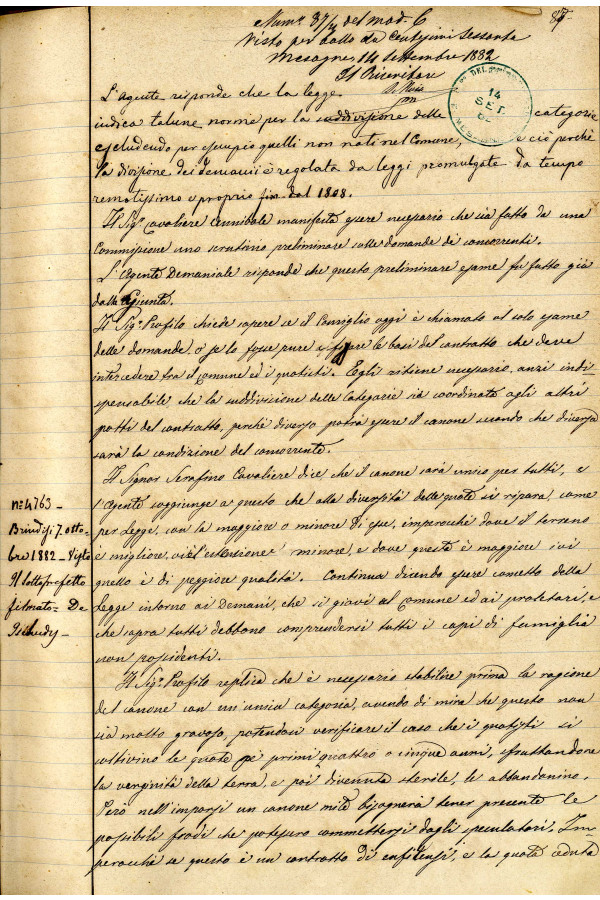 Num.º 37/4 del mod. C
Visto per bollo da Centesimi Sessanta
Mesagne 14 Settembre 1882
Il Ricevitore
14
SET
L'Agente risponde che la legge
indica talune norme per la suddivisione delle categorie
escludendo per esempio quelli non nati nel Comune, e ciò perchè
la divisione dei demanii è regolata da leggi promulgate da tempo
remotissimo e proprio fin dal 1808.
Il Sig.r Cavaliere Annibale manifesta essere necessario che sia fatto da una
Commissione uno scrutinio preliminare sulle domande dei concorrenti.
L'Agente Demaniale risponde che questo preliminare esame fu fatto già
dalla Giunta.
Il Sig.r Profilo chiede sapere se il Consiglio oggi è chiamato al solo esame
delle domande, o se lo fosse pure a fissare le basi del contratto che deve
intercedere tra il Comune ed i quotisti. Egli ritiene necessario, anzi indi
spensabile che la suddivisione delle Categorie sia coordinata agli altri
patti del contratto, perchè diverso potrà essere il canone secondo che diversa
sarà la condizione del concorrente.
Il Signor Serafino Cavaliere dice che il canone sarà unico per tutti, e
l'Agente soggiunge a questo che alla diversità delle quote si ripara, come
per Legge, con la maggiore o minore di esse, imperochè dove il terreno
è migliore, ivi l'estensione è minore, e dove questa è maggiore ivi
quello è di peggiore qualità. Continua dicendo essere concetto della
Legge intorno ai Demani, che si giovi al Comune ed ai proletari, e
che sopra tutti debbono comprendersi tutti i capi di famiglia
non possidenti.
Il Sig.r Profilo replica che è necessario stabilire prima la ragione
del canone con un'unica categoria, avendo di mira che questo non
sia molto gravoso, potendosi verificare il caso che i quotisti si
coltivino le quote pe' primi quattro o cinque anni, sfruttandone
la verginità della terra, e poi divenuta sterile, le abbandonino.
Però nell'imporsi un canone mite bisognerà tener presente le
possibili frodi che potessero commettersi dagli speculatori. Im
perocchè se questo è un contratto di enfiteusi, e la quota ceduta
N.º 4763 -
Brindisi 7 otto-
bre 1882 - Visto
Il Sottoprefetto
firmato = De
Tschudy -